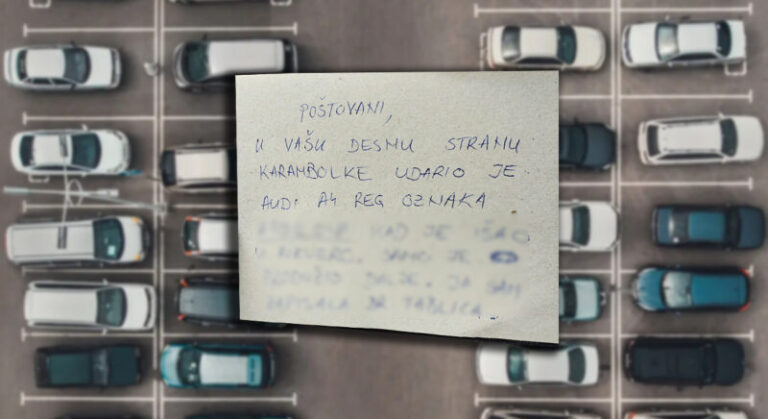 POŠTOVANI,
U VAŠU DESNU STRANU
KARAMBOLKE UDARIO JE
AUDI A4 REG OZNAKA
KAD JE IŠAO
SAMO JE
DALJE. JA SAM
ZAPISALA BR TABLICA.